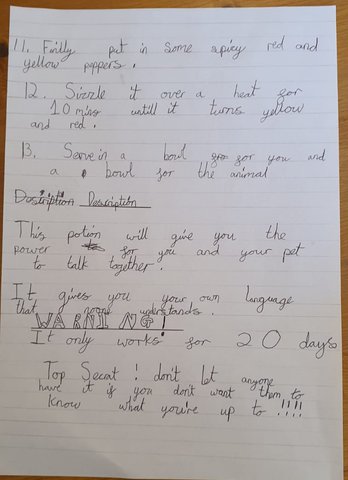 11. Finlly put in some spicy red and
yellow peppers.
12. Sizzle it over a heat for
10 mins untill it turns yellow
and red.
13. Serve in a bowl for you and
a bowl for the animal
Description
This potion will give you the
power for you and your pet
to talk together.
It gives you your own language
that understands.
WARNING!
It only works for 20 days
Top Secrat! don't let anyone
have it if you don't want them to
know what you're up to !!!!